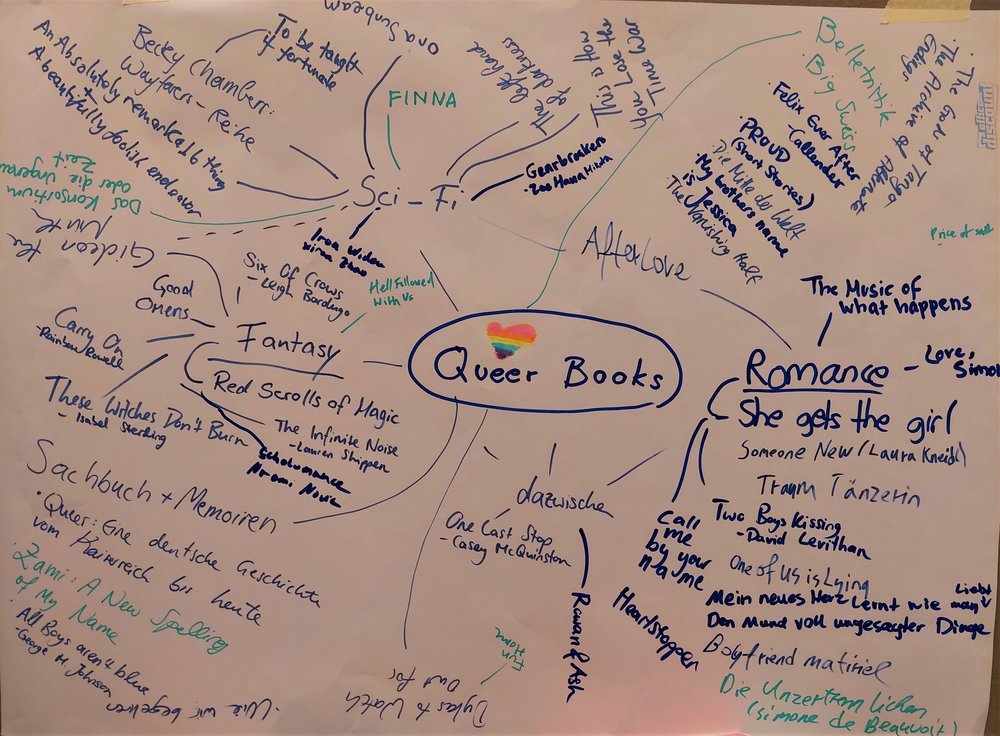 Queer Books
Sci-Fi
ora Sunbeam
To be taught
if fortunate
Becky Chambers:
Wayfarers-Reihe
An Absolutely remarkable thing
+
A beautifully foolish endeavor
Das Konsortium
oder die
Zeit
Gideon the
Ninth
FINNA
The left hand
of darkness
This is how
you Lose the
Time War
Gearbreakers
- Zoe Hana Mikuta
Iron Widow
Xiran Zhao
Fantasy
Good
Omens
Carry On
-Rainbow Rowell
These Witches Don't Burn
- Isabel Sterling
Six Of Crows
- Leigh Bardugo
Hell Followed
With Us
Red Scrolls of Magic
The Infinite Noise
- Lauren Shippen
Scholomance
Naomi Novik
Sachbuch + Memoiren
· Queer: Eine deutsche Geschichte
vom Kaiserreich bis heute
Zami: A New Spelling
of My Name
· All Boys aren't blue
- George M. Johnson
· Wie wir begehren
Dykes to Watch
Out for
Fun
Home
dazwische
One Last Stop
- Casey McQuinston
Rowan & Ash
Belletristik
· Big Swiss
· The Gods of Tango
· The Archive of Alternate
Endings
Felix Ever After
- Callender
· PROUD
(Short Stories)
Die Mitte der Welt
· My brothers name
is Jessica
The Vanishing Half
Price of salt
AfterLove
Romance
The Music of
what happens
- Love,
Simon
She gets the girl
Someone New (Laura Kneidl)
Traum Tänzerin
Two Boys Kissing
- David Levithan
One of Us is Lying
Mein neues Herz Lernt wie man Liebt
Den Mund voll ungesagter Dinge
Boyfriend matiriel
Die Unzertrennlichen
(Simone de Beauvoir)
Call
me
by your
name
Heartstopper